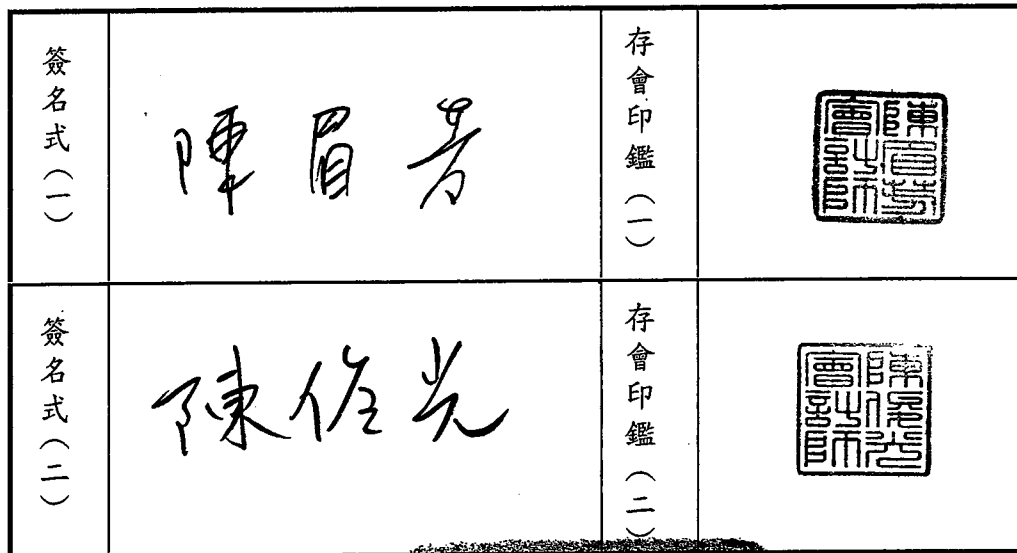 簽名式（一）
陳眉芳
存會印鑑（一）
陳眉芳會計師
簽名式（二）
陳俊光
存會印鑑（二）
陳俊光會計師